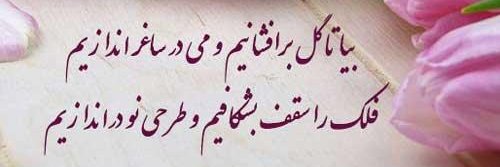 بیا تا گل برافشانیم و می در ساغر اندازیم
فلک را سقف بشکافیم و طرحی نو در اندازیم